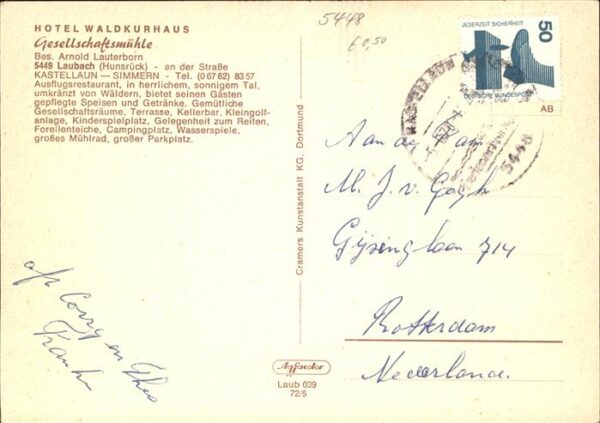 HOTEL WALDKURHAUS
Gesellschaftsmühle
Bes. Arnold Lauterborn
5449 Laubach (Hunsrück) - an der Straße
KASTELLAUN — SIMMERN - Tel. (0 67 62) 83 57
Ausflugsrestaurant, in herrlichem, sonnigem Tal,
umkränzt von Wäldern, bietet seinen Gästen
gepflegte Speisen und Getränke. Gemütliche
Gesellschaftsräume, Terrasse, Kellerbar, Kleingolf-
anlage, Kinderspielplatz, Gelegenheit zum Reiten,
Forellenteiche, Campingplatz, Wasserspiele,
großes Mühlrad, großer Parkplatz.
5448
€ 0,50
JEDERZEIT SICHERHEIT
50
DEUTSCHE BUNDESPOST
AB
5448
Cramers Kunstanstalt KG. Dortmund
Aan de Fam
M. J. v. Gogh
Gijsinglaan 714
Rotterdam
Nederland.
afz Corry en Theo
Agfacolor
Laub 039
72/5